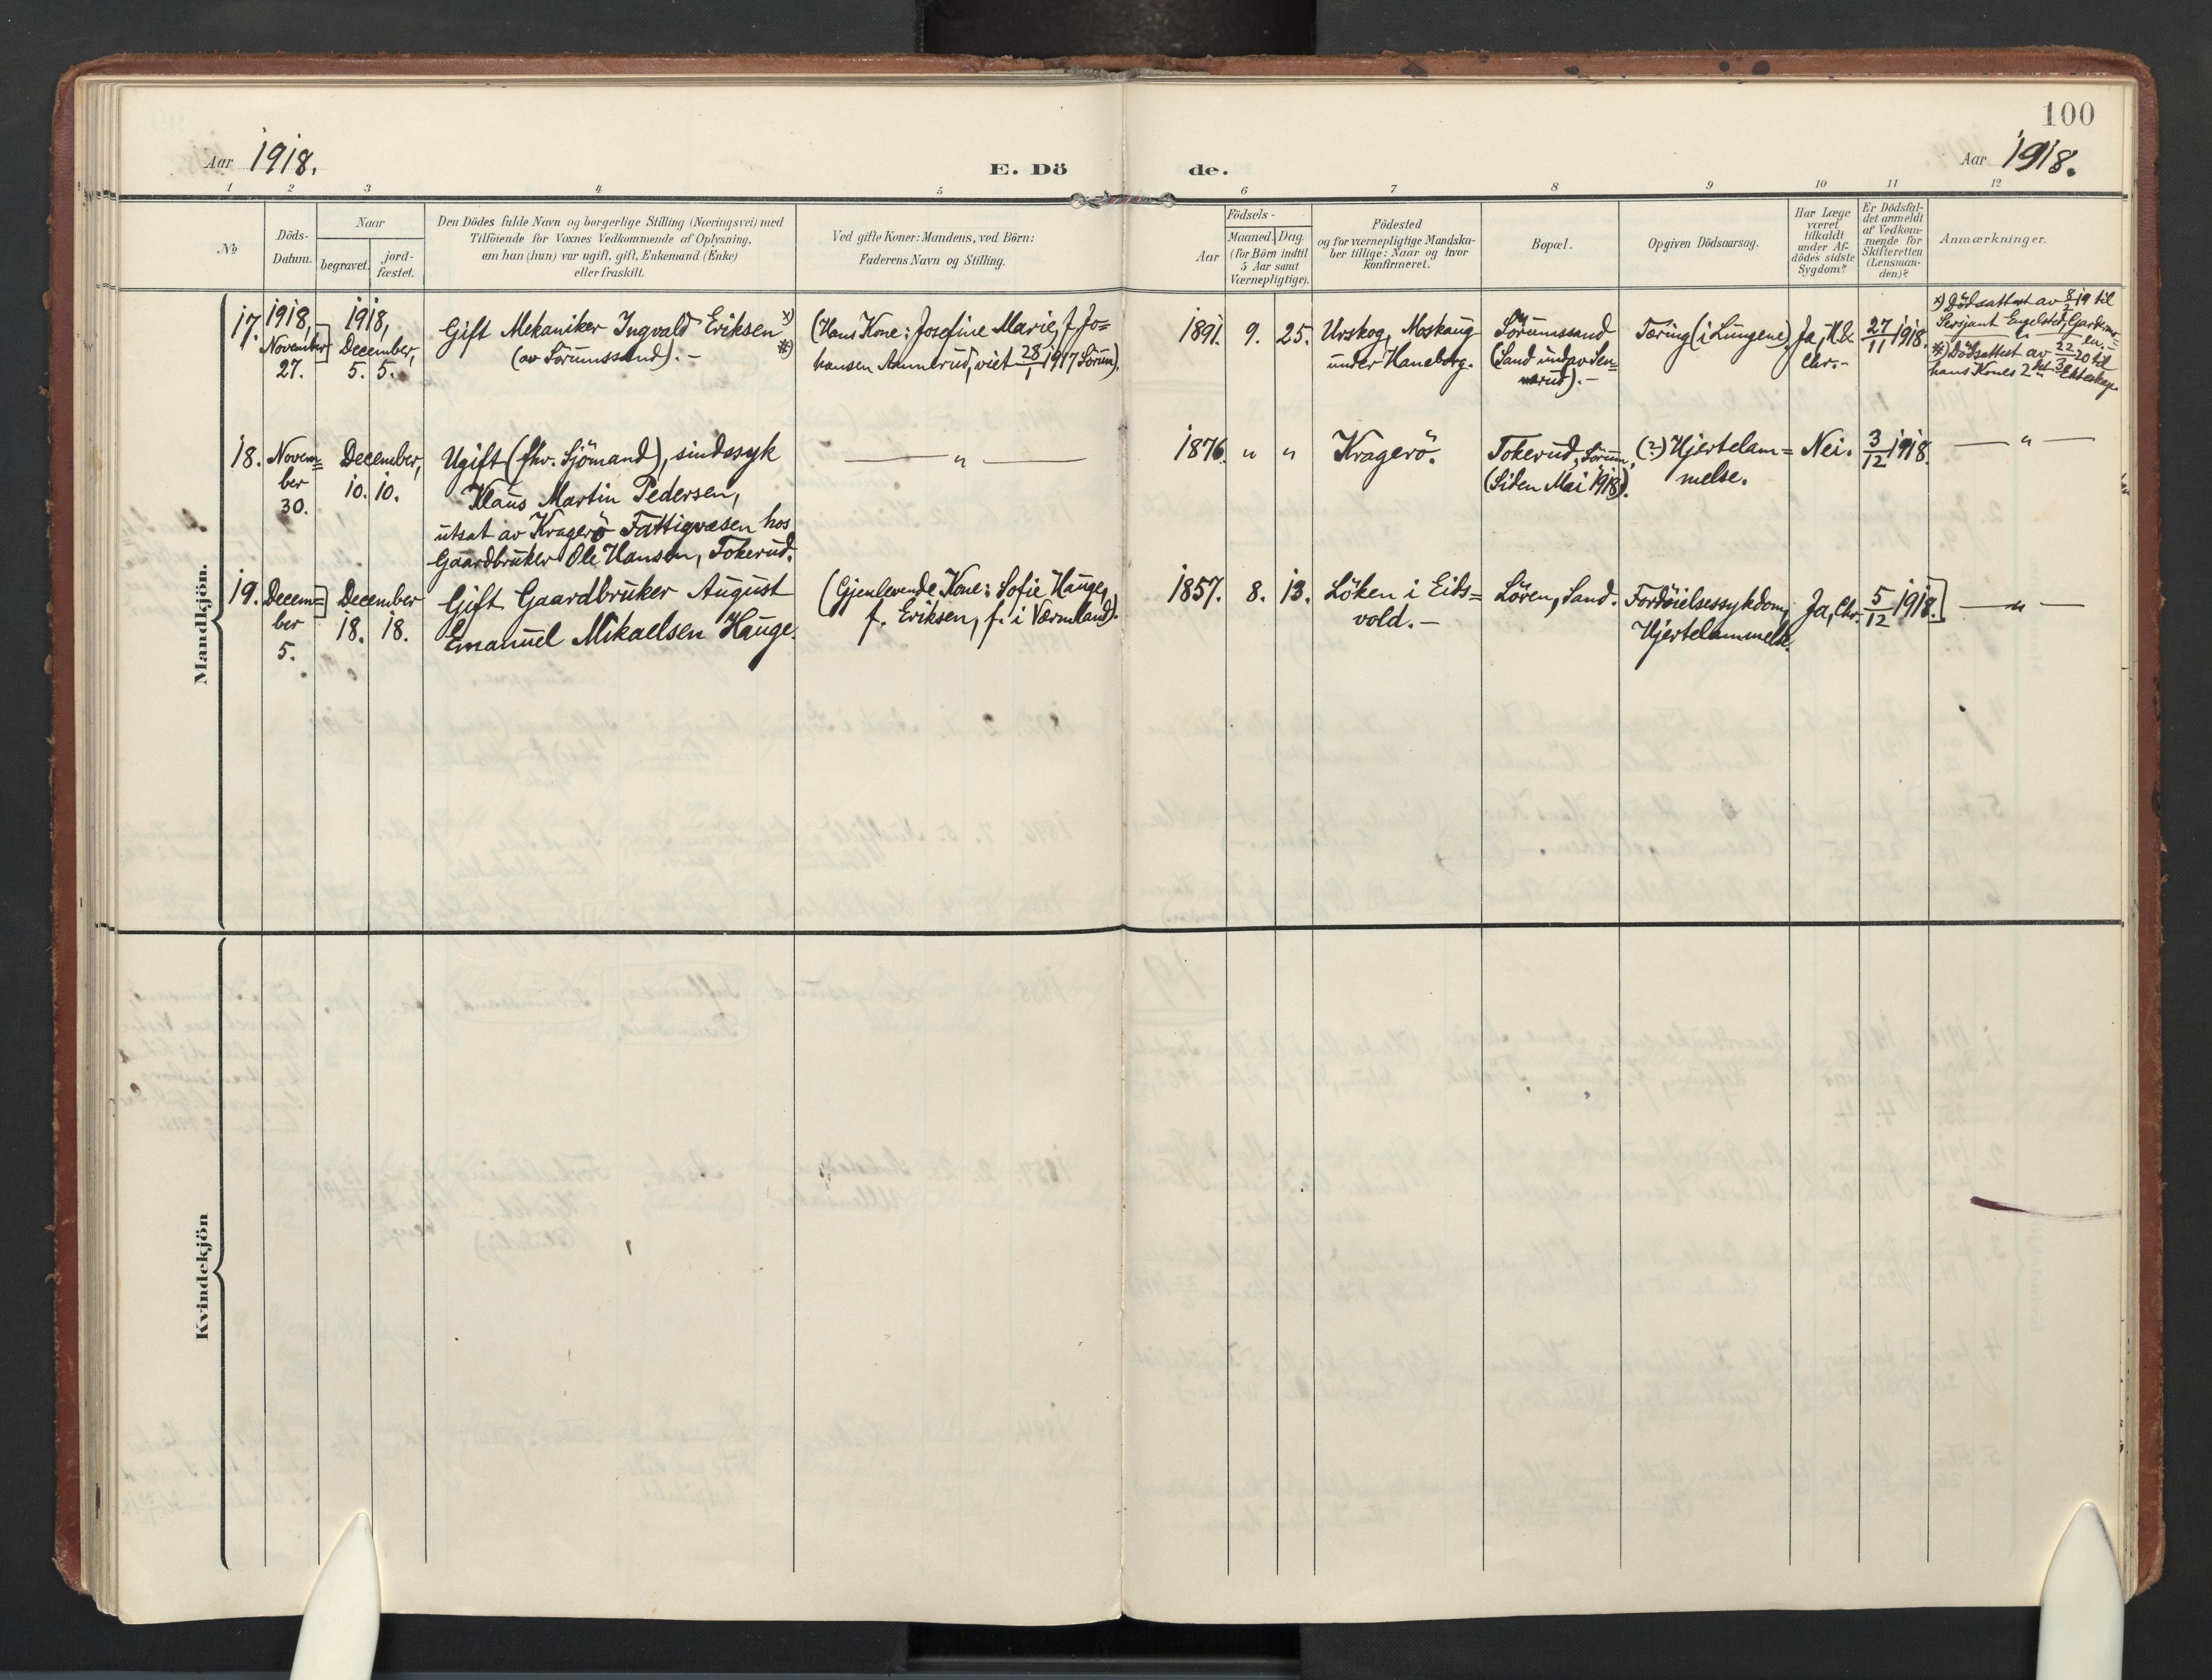 100
Aar 1918.
E. Dö
de.
Aar 1918.
1
2
3
4
5
6
7
8
9
10
11
12
No
Döds-
Datum.
Naar
begravet.
jord-
fæstet.
Den Dödes fulde Navn og borgerlige Stilling (Næringsvei) med
Tilföiende for Voxnes Vedkommende af Oplysning,
om han (hun) var ugift, gift, Enkemand (Enke)
eller fraskilt.
Ved gifte Koner: Mandens, ved Börn:
Faderens Navn og Stilling.
Födsels-
Aar
Maaned.
Dag.
(for Börn indtil
5 Aar samt
Værnepligtige).
Födested
og for værnepligtige Mandska-
ber tillige: Naar og hvor
konfirmeret.
Bopæl.
Opgiven Dödsaarsag.
Har Læge
været
tilkaldt
under Af-
dödes sidste
Sygdom?
Er Dödsfal-
det anmeldt
af Vedkom-
mende for
Skifteretten
(Lensman-
den)?
Anmærkninger.
Mandkjön.
17.
1918,
November
27.
1918,
December,
5. 5.
Gift Mekaniker Ingvald Eriksen x)
(av Sörumssand). – *)
(Hans Kone: Josefine Marie, f. Jo=
hansen Annerud, viet 28/1 1917 Sörum).
1891. 9. 25.
Urskog, Moskaug
under Haneborg.
Sörumssand
(Sand
Tæring (i Lungene)
Ja,
Chr.-
27/11 1918.
x) Dödsattest av 8/3 19 til
Sersjant Engelsted, Gardermo=
en.-
*) Dödsattest av 22/3 20 til
hans Kones 2det Ekteskap.
18.
Novem=
ber
30.
December,
10. 10.
Ugift (fhv. Sjömand), sindssyk
Klaus Martin Pedersen,
utsat av Kragerö Fattigvæsen hos
Gaardbruker Ole Hansen, Tokerud.
— „ —
1876. „ „
Kragerö.
Tokerud, Sörum,
(Siden Mai 1918).
(?) Hjertelam=
melse.
Nei.
3/12 1918.
— „ —
19.
Decem=
ber
5.
December
18. 18.
Gift Gaardbruker August
Emanuel Mikaelsen Hauge.
(Gjenlevende Kone: Sofie Hauge,
f. Eriksen, f. i Værmland).
1857. 8. 13.
Löken i Eids=
vold. –
Lören, Sand.
Fordöielsessykdom,
Hjertelammelse.
Ja, Chr.
5/12 1918.
— „ —
Kvindekjön